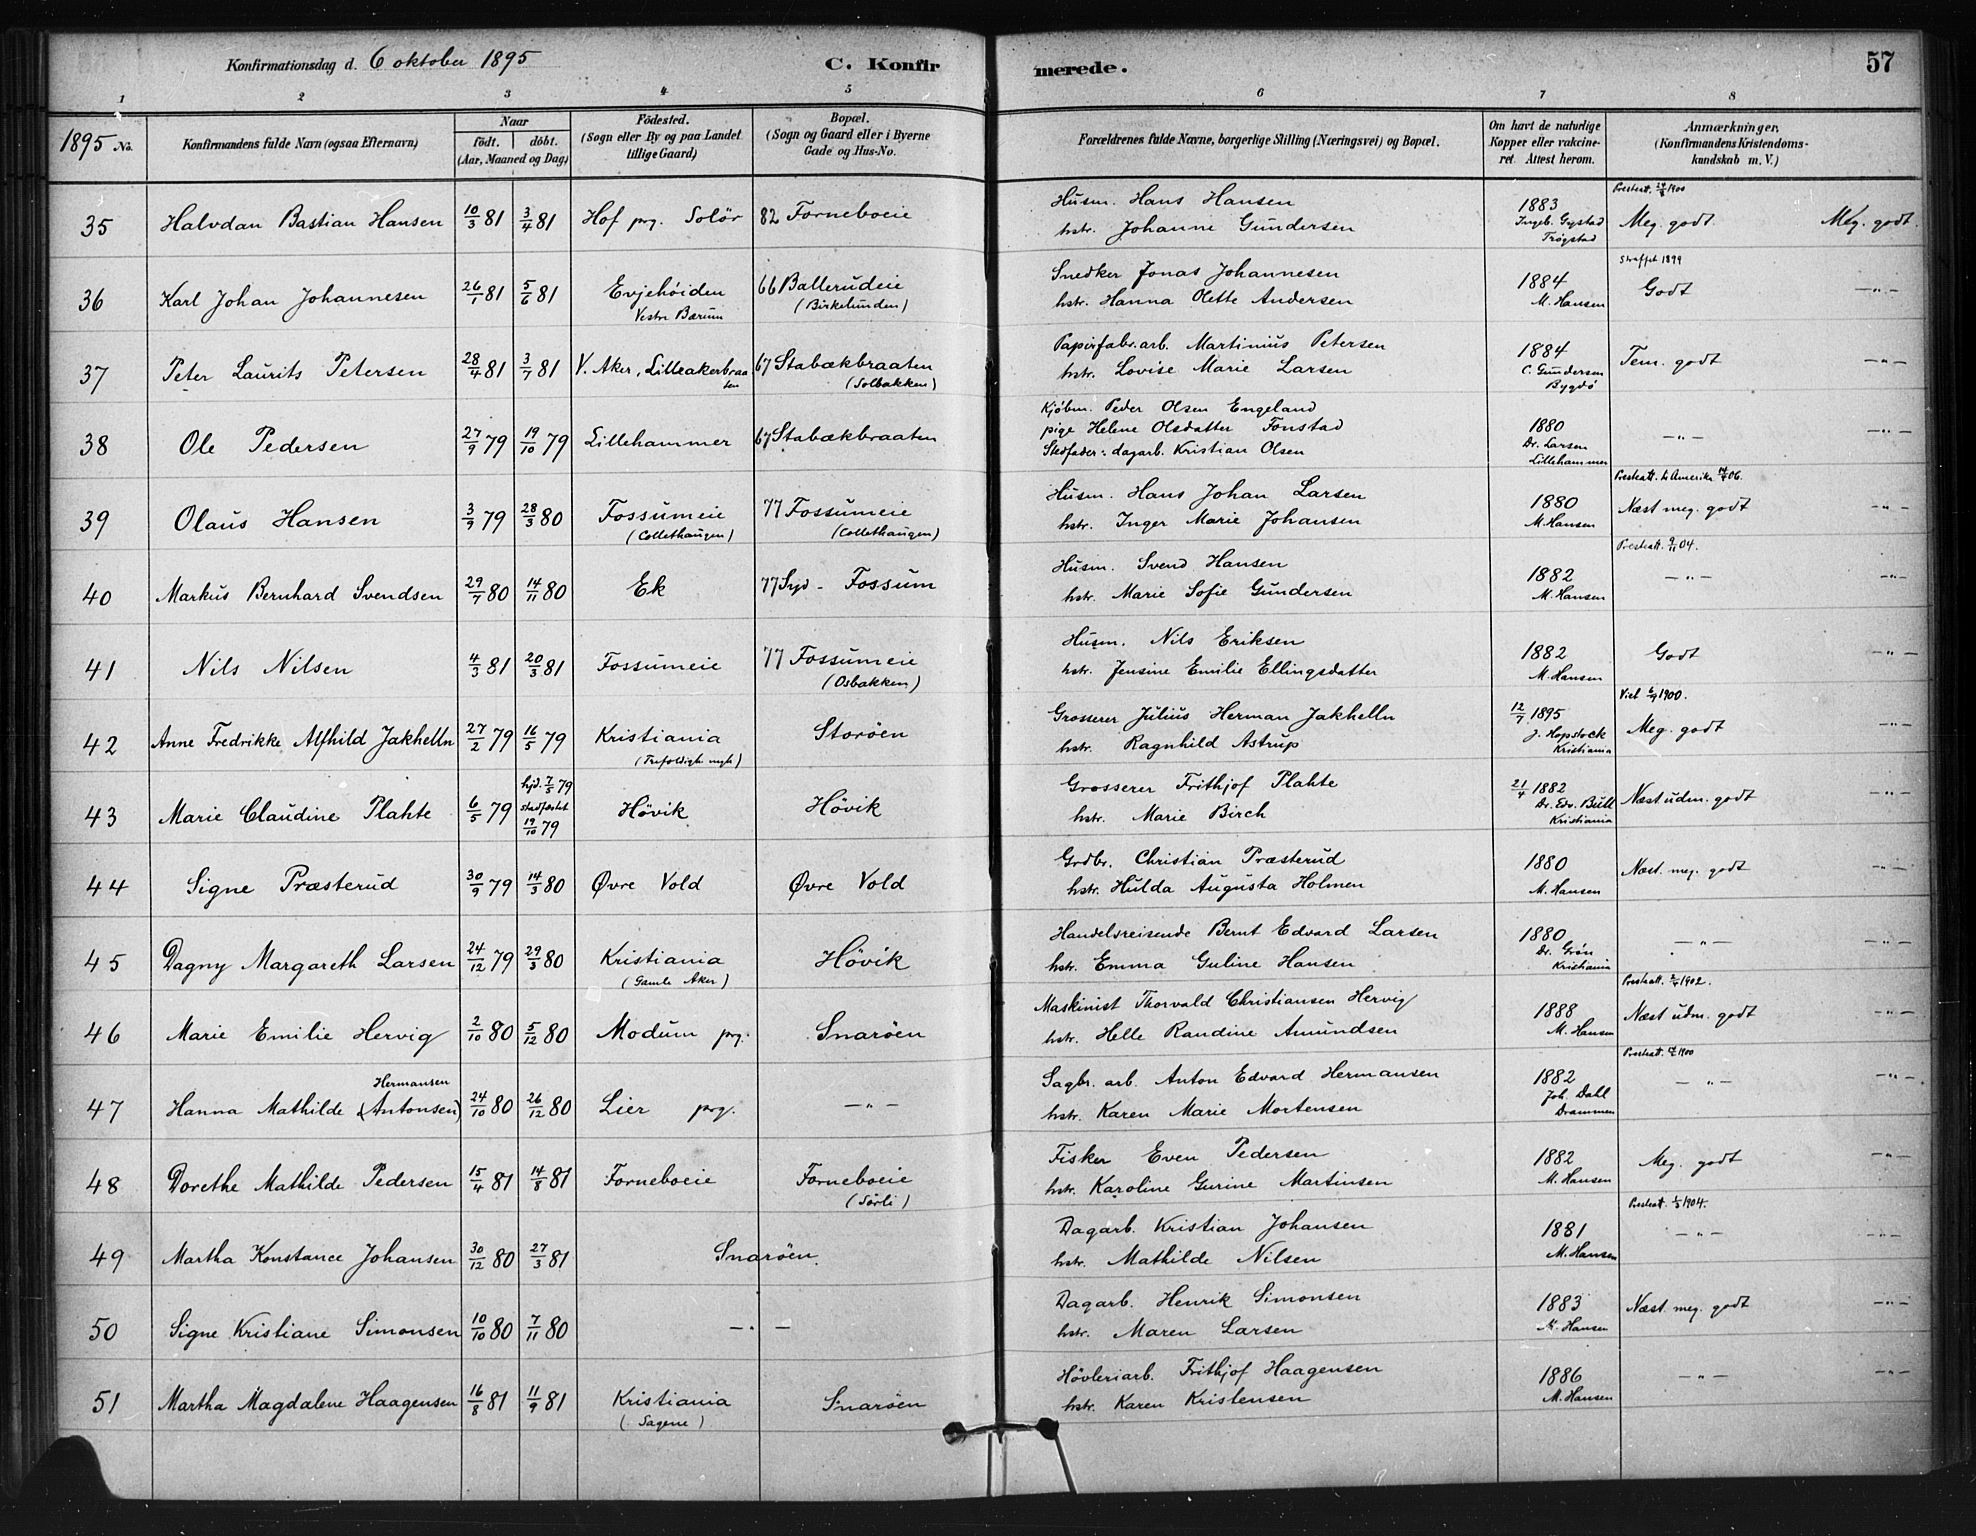 Konfirmationsdag d. 6 oktober 1895
C. Konfirmerede.
57
1 2 3 4 5 6 7 8
1895 No.
Konfirmandens fulde Navn (ogsaa Efternavn)
Naar
födt. döbt.
(Aar, Maaned og Dag)
Födested.
(Sogn eller By og paa Landet
tillige Gaard)
Bopæl.
(Sogn og Gaard eller i Byerne
Gade og Hus-No.
Forældrenes fulde Navne, borgerlige Stilling (Næringsvei) og Bopæl.
Om havt de naturlige
Kopper eller vakcine-
ret. Attest herom.
Anmærkninger.
(Konfirmandens Kristendoms-
kundskab m. V.)
35 Halvdan Bastian Hansen 10/3 81 3/4 81 Hof prg. Solör 82 Forneboeie
Husm. Hans Hansen
hstr. Johanne Gundersen
1883
Ingeb. Gystad
Trögstad
Presteatt. 24/8 1900
Meg. godt. Meg. godt.
36 Karl Johan Johannesen 26/1 81 5/6 81 Evjehöiden
Vestre Bærum
66 Ballerudeie
(Birkelunden)
Snedker Jonas Johannesen
hstr. Hanna Olette Andersen
1884
M. Hansen
Straffet 1899
Godt -"-
37 Peter Laurits Petersen 28/4 81 3/7 81 V. Aker, Lilleakerbraa
ten
67 Stabækbraaten
(Solbakken)
Papirfabr. arb. Martinius Petersen
hstr. Lovise Marie Larsen
1884
C. Gundersen
Bygdö
Tem. godt -"-
38 Ole Pedersen 27/9 79 19/10 79 Lillehammer 67 Stabækbraaten
Kjöbm. Peder Olsen Engeland
pige Helene Olsdatter Fonstad
Stedfader: dagarb. Kristian Olsen
1880
Dr. Larsen
Lillehammer
-"- -"-
39 Olaus Hansen 3/9 79 28/3 80 Fossumeie
(Colletthaugen)
77 Fossumeie
(Colletthaugen)
Husm. Hans Johan Larsen
hstr. Inger Marie Johansen
1880
M. Hansen
Presteatt. til Amerika 06.
Næst meg. godt -"-
40 Markus Bernhard Svendsen 29/7 80 14/11 80 Ek 77 Syd-Fossum
Husm. Svend Hansen
hstr. Marie Sofie Gundersen
1882
M. Hansen
Presteatt. 9/11 04.
-"- -"-
41 Nils Nilsen 4/3 81 20/3 81 Fossumeie 77 Fossumeie
(Osbakken)
Husm. Nils Eriksen
hstr. Jensine Emilie Ellingsdatter
1882
M. Hansen
Godt -"-
42 Anne Fredrikke Alfhild Jakhelln 27/2 79 16/5 79 Kristiania
(Trefoldigh. mgh)
Storöen
Grosserer Julius Herman Jakhelln
hstr. Ragnhild Astrup
12/7 1895
J. Hopstock
Kristiania
Viet 1900.
Meg. godt -"-
43 Marie Claudine Plahte 6/5 79 hjd. 7/5 79
stadfæstet
19/10 79
Hövik Hövik
Grosserer Frithjof Plahte
hstr. Marie Birch
21/4 1882
Dr. Edv. Bull
Kristiania
Næst udm. godt -"-
44 Signe Præsterud 30/9 79 14/3 80 Øvre Vold Øvre Vold
Grdbr. Christian Præsterud
hstr. Hulda Augusta Holmen
1880
M. Hansen
Næst. meg. godt -"-
45 Dagny Margareth Larsen 24/12 79 29/3 80 Kristiania
(Gamle Aker)
Hövik
Handelsreisende Bernt Edvard Larsen
hstr. Emma Guline Hansen
1880
Dr. Grön
Kristiania
-"- -"-
46 Marie Emilie Hervig 2/10 80 5/12 80 Modum prg. Snaröen
Maskinist Thorvald Christiansen Hervig
hstr. Helle Randine Amundsen
1888
M. Hansen
Presteatt. 1902.
Næst udm. godt
47 Hanna Mathilde Hermansen
(Antonsen) 24/10 80 26/12 80 Lier prg. -"-
Sagbr. arb. Anton Edvard Hermansen
hstr. Karen Marie Mortensen
1882
Joh. Dahl
Drammen
Presteatt. 1900
-"- -"-
48 Dorethe Mathilde Pedersen 15/4 81 14/8 81 Forneboeie Forneboeie
(Sörli)
Fisker Even Pedersen
hstr. Karoline Gurine Martinsen
1882
M. Hansen
Meg. godt -"-
49 Martha Konstance Johansen 30/12 80 27/3 81 Snaröen.
Dagarb. Kristian Johansen
hstr. Mathilde Nilsen
1881
M. Hansen
Presteatt. 1904.
-"- -"-
50 Signe Kristiane Simonsen 10/10 80 7/11 80 -"-
Dagarb. Henrik Simonsen
hstr. Maren Larsen
1883
M. Hansen
Næst. meg. godt -"-
51 Martha Magdalene Haagensen 16/8 81 11/9 81 Kristiania
(Sagene)
Snaröen
Hövleriarb. Frithjof Haagensen
hstr. Karen Kristensen
1886
M. Hansen
-"- -"-